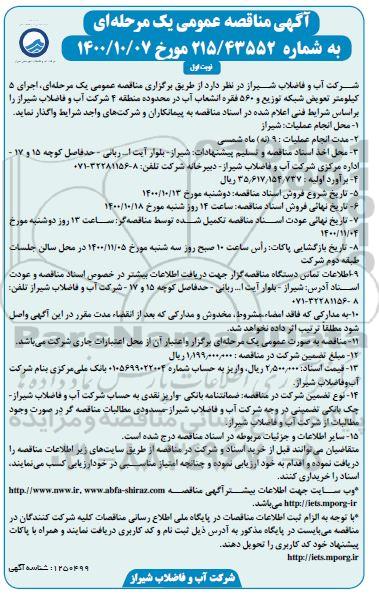 آگهی مناقصه عمومی یک مرحله‌ای
به شماره ۲۱۵/۴۳۵۵۲ مورخ ۱۴۰۰/۱۰/۰۷
نوبت اول
شرکت آب و فاضلاب شیراز در نظر دارد از طریق برگزاری مناقصه عمومی یک مرحله‌ای، اجرای ۵
کیلومتر تعویض شبکه توزیع و ۵۶۰ فقره انشعاب آب در محدوده منطقه ۴ شرکت آب و فاضلاب شیراز را
براساس شرایط فنی اعلام شده در اسناد مناقصه به پیمانکاران و شرکت‌های واجد شرایط واگذار نماید.
۱- محل انجام عملیات: شیراز
۲- مدت انجام عملیات: ۹ (نه) ماه شمسی
۳- محل اخذ اسناد مناقصه و تسلیم پیشنهادات: شیراز- بلوار آیت ا... ربانی - حدفاصل کوچه ۱۵ و ۱۷ -
اداره مرکزی شرکت آب و فاضلاب شیراز- دبیرخانه شرکت تلفن: ۸-۳۲۲۸۱۱۵۶-۰۷۱
۴- برآورد اولیه: ۳۵،۶۱۷،۱۵۴،۷۳۷ ریال
۵- تاریخ شروع فروش اسناد مناقصه: دوشنبه مورخ ۱۴۰۰/۱۰/۱۳
۶- تاریخ نهائی فروش اسناد مناقصه: ساعت ۱۴ روز شنبه مورخ ۱۴۰۰/۱۰/۱۸
۷- تاریخ نهائی عودت اسناد مناقصه تکمیل شده توسط مناقصه‌گر: ساعت ۱۳ روز دوشنبه مورخ
۱۴۰۰/۱۱/۰۴
۸- تاریخ بازگشایی پاکات: رأس ساعت ۱۰ صبح روز سه شنبه مورخ ۱۴۰۰/۱۱/۰۵ در محل سالن جلسات
طبقه دوم شرکت
۹- اطلاعات تماس دستگاه مناقصه‌گزار جهت دریافت اطلاعات بیشتر در خصوص اسناد مناقصه و عودت
اسناد: آدرس: شیراز - بلوار آیت ا... ربانی - حدفاصل کوچه ۱۵ و ۱۷ - شرکت آب و فاضلاب شیراز تلفن:
۸-۳۲۲۸۱۱۵۶-۰۷۱
۱۰- به مدارکی که فاقد امضاء، مشروط، مخدوش و مدارکی که بعد از انقضاء مدت مقرر در این آگهی واصل
شود مطلقا ترتیب اثر داده نخواهد شد.
۱۱- مناقصه به صورت عمومی یک مرحله‌ای برگزار و اعتبار آن از محل اعتبارات جاری شرکت می‌باشد.
۱۲- مبلغ تضمین شرکت در مناقصه: ۱،۱۹۹،۰۰۰،۰۰۰ ریال
۱۳- قیمت اسناد: ۲،۵۰۰،۰۰۰ ریال، واریز به حساب شماره ۰۱۰۵۶۹۹۰۲۲۰۰۴ بانک ملی‌مرکزی بنام شرکت
آب‌وفاضلاب شیراز.
۱۴- نوع تضمین شرکت در مناقصه: ضمانتنامه بانکی -واریز نقدی به حساب شرکت آب و فاضلاب شیراز-
چک بانکی تضمینی در وجه شرکت آب و فاضلاب شیراز-مسدودی مطالبات مناقصه گر در صورت وجود
مطالبات از شرکت آب و فاضلاب شیراز.
۱۵- سایر اطلاعات و جزئیات مربوطه در اسناد مناقصه درج شده است.
متقاضیان می‌توانند قبل از خرید اسناد و شرکت در مناقصه از طریق سایت‌های زیر اطلاعات مناقصه را
دریافت نموده و اقدام به خود ارزیابی نموده و چنانچه امتیاز مناسبی در خودارزیابی کسب می‌نمایند،
اسناد را خریداری کنند.
*وب سایت جهت اطلاعات بیشتر آگهی مناقصه http://www.nww.ir, www.abfa-shiraz.com
http://iets.mporg-ir می‌باشد.
*با توجه به الزام ثبت اطلاعات مناقصات در پایگاه ملی اطلاع رسانی مناقصات کلیه شرکت کنندگان در
مناقصه می‌بایست در پایگاه مذکور به آدرس ذیل ثبت نام و کد کاربری دریافت نمایند و همراه با پاکات
پیشنهاد خود کد کاربری را تحویل دهند.
http://iets.mporg-ir
شناسه آگهی: ۱۲۵۰۴۹۹
شرکت آب و فاضلاب شیراز